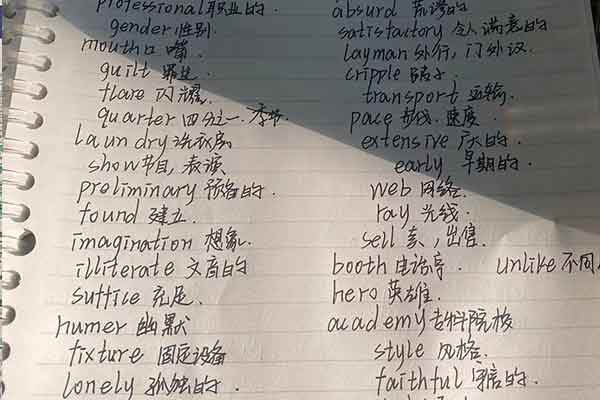 professional 职业的.
gender 性别
mouth 口 嘴
guilt 罪
flare 闪耀.
quarter 四分之一. 季节
laundry 洗衣房
show 节目, 表演
preliminary 预备的.
found 建立.
imagination 想象.
illiterate 文盲的
suffice 充足.
humer 幽默
fixture 固定设备
lonely 孤独的.
absurd 荒谬的
satisfactory 令人满意的
layman 外行, 门外汉
cripple 跛子
transport 运输.
pace 步伐. 速度.
extensive 广大的.
early 早期的.
web 网络.
ray 光线.
sell 卖, 出售.
booth 电话亭. unlike 不同
hero 英雄.
academy 专科院校
style 风格.
faithful 守信的.